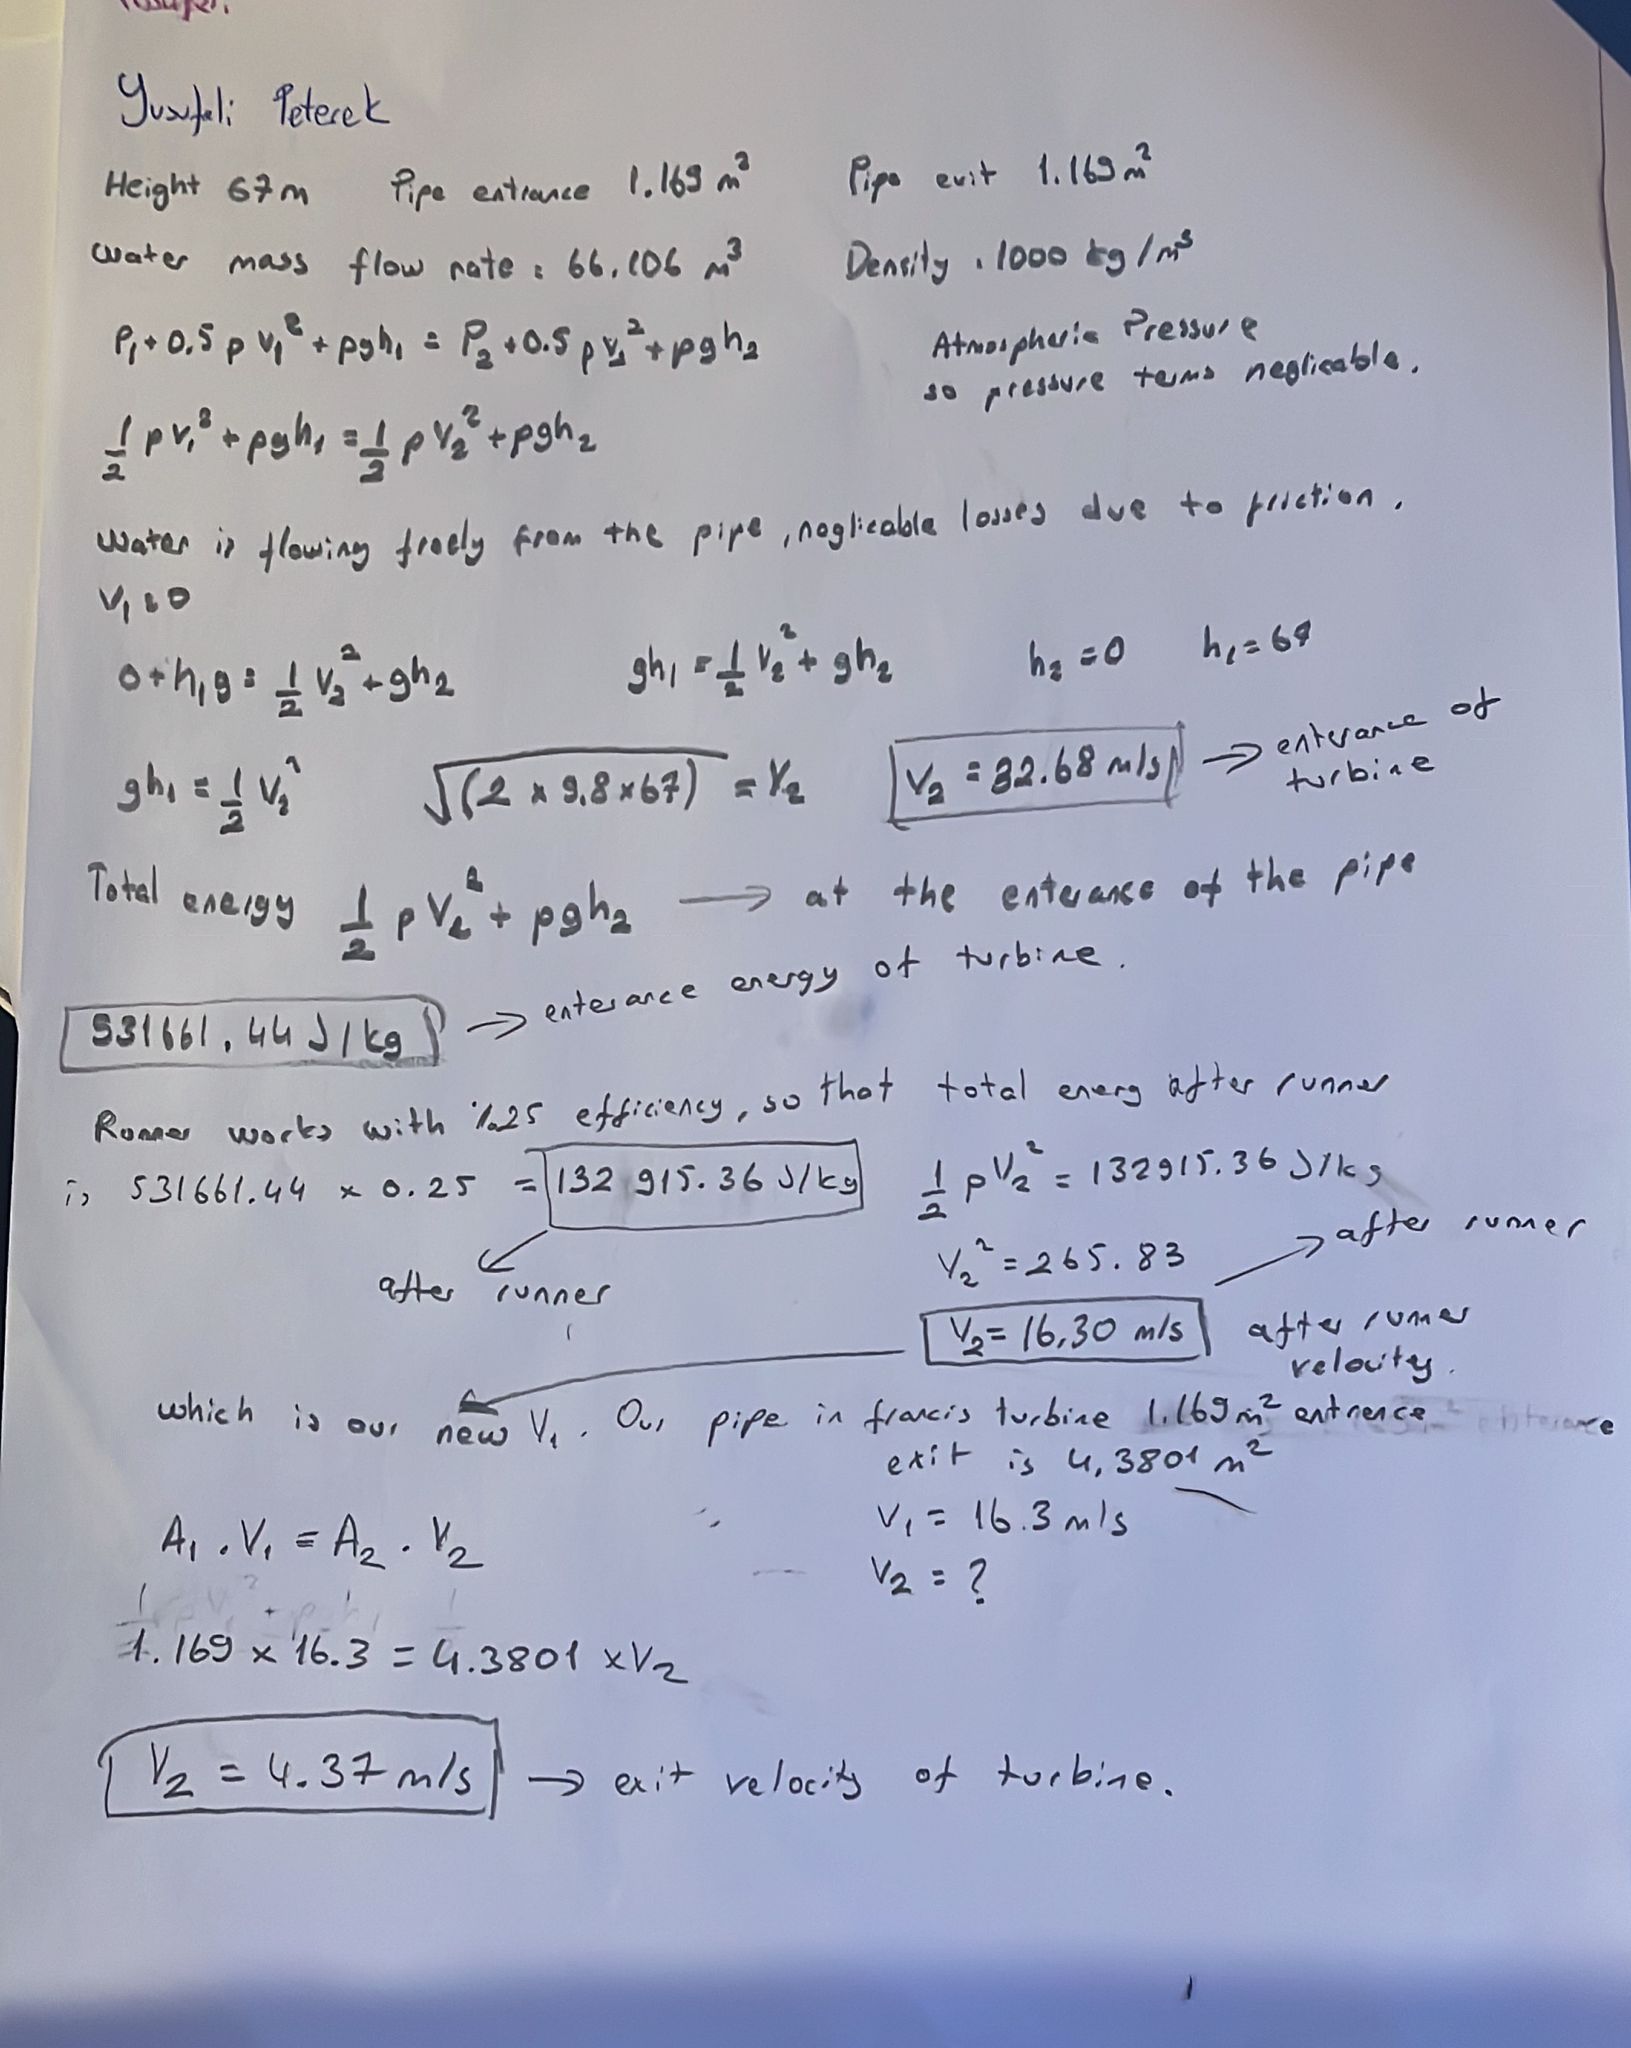 Yusufeli Peterek
Height 67m Pipe entrance 1.169 m² Pipe exit 1.169 m²
Water mass flow rate : 66.106 m³ Density : 1000 kg/m³
P₁ + 0,5 ρ V₁² + ρgh₁ = P₂ + 0.5 ρ V₂² + ρgh₂ Atmospheric Pressure
so pressure terms neglicable.
1/2 ρ V₁² + ρgh₁ = 1/2 ρ V₂² + ρgh₂
Water is flowing freely from the pipe, neglicable losses due to friction.
V₁ = 0
0 + h₁g = 1/2 V₂² + gh₂ gh₁ = 1/2 V₂² + gh₂ h₂ = 0 h₁ = 67
gh₁ = 1/2 V₂² √(2 x 9,8 x 67) = V₂ V₂ = 32.68 m/s → enterance of
turbine
Total energy 1/2 ρ V₂² + ρgh₂ → at the enterance of the pipe
531661,44 J/kg → enterance energy of turbine.
Runner works with %25 efficiency, so that total energ after runner
is 531661.44 x 0.25 = 132 915.36 J/kg 1/2 ρ V₂² = 132915.36 J/kg
after runner V₂² = 265.83 → after runner
V₂ = 16,30 m/s after runner
velocity.
which is our new V₁. Our pipe in francis turbine 1.169 m² entrence
exit is 4,3801 m²
V₁ = 16.3 m/s
A₁ . V₁ = A₂ . V₂
V₂ = ?
1.169 x 16.3 = 4.3801 x V₂
V₂ = 4.37 m/s → exit velocity of turbine.